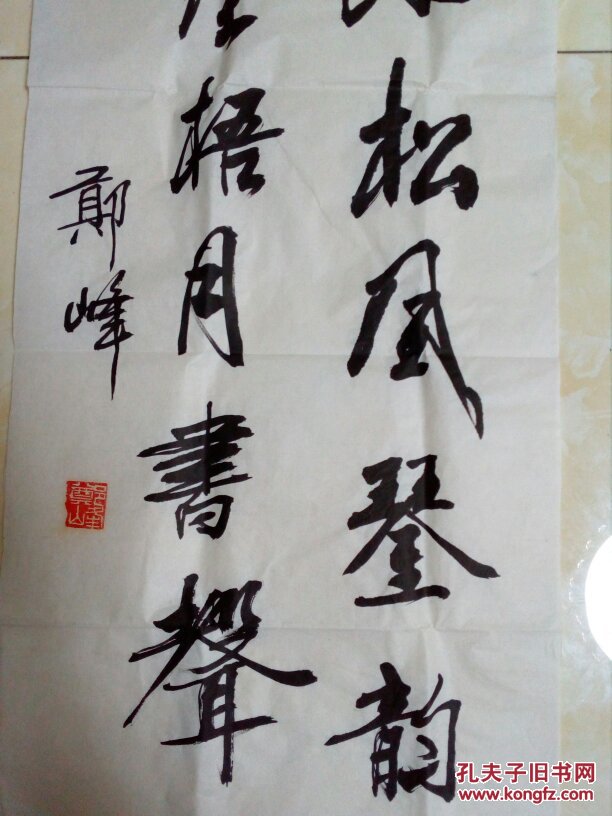 松風琴韵
梧月書聲
鄭峰
孔夫子旧书网
www.kongfz.com